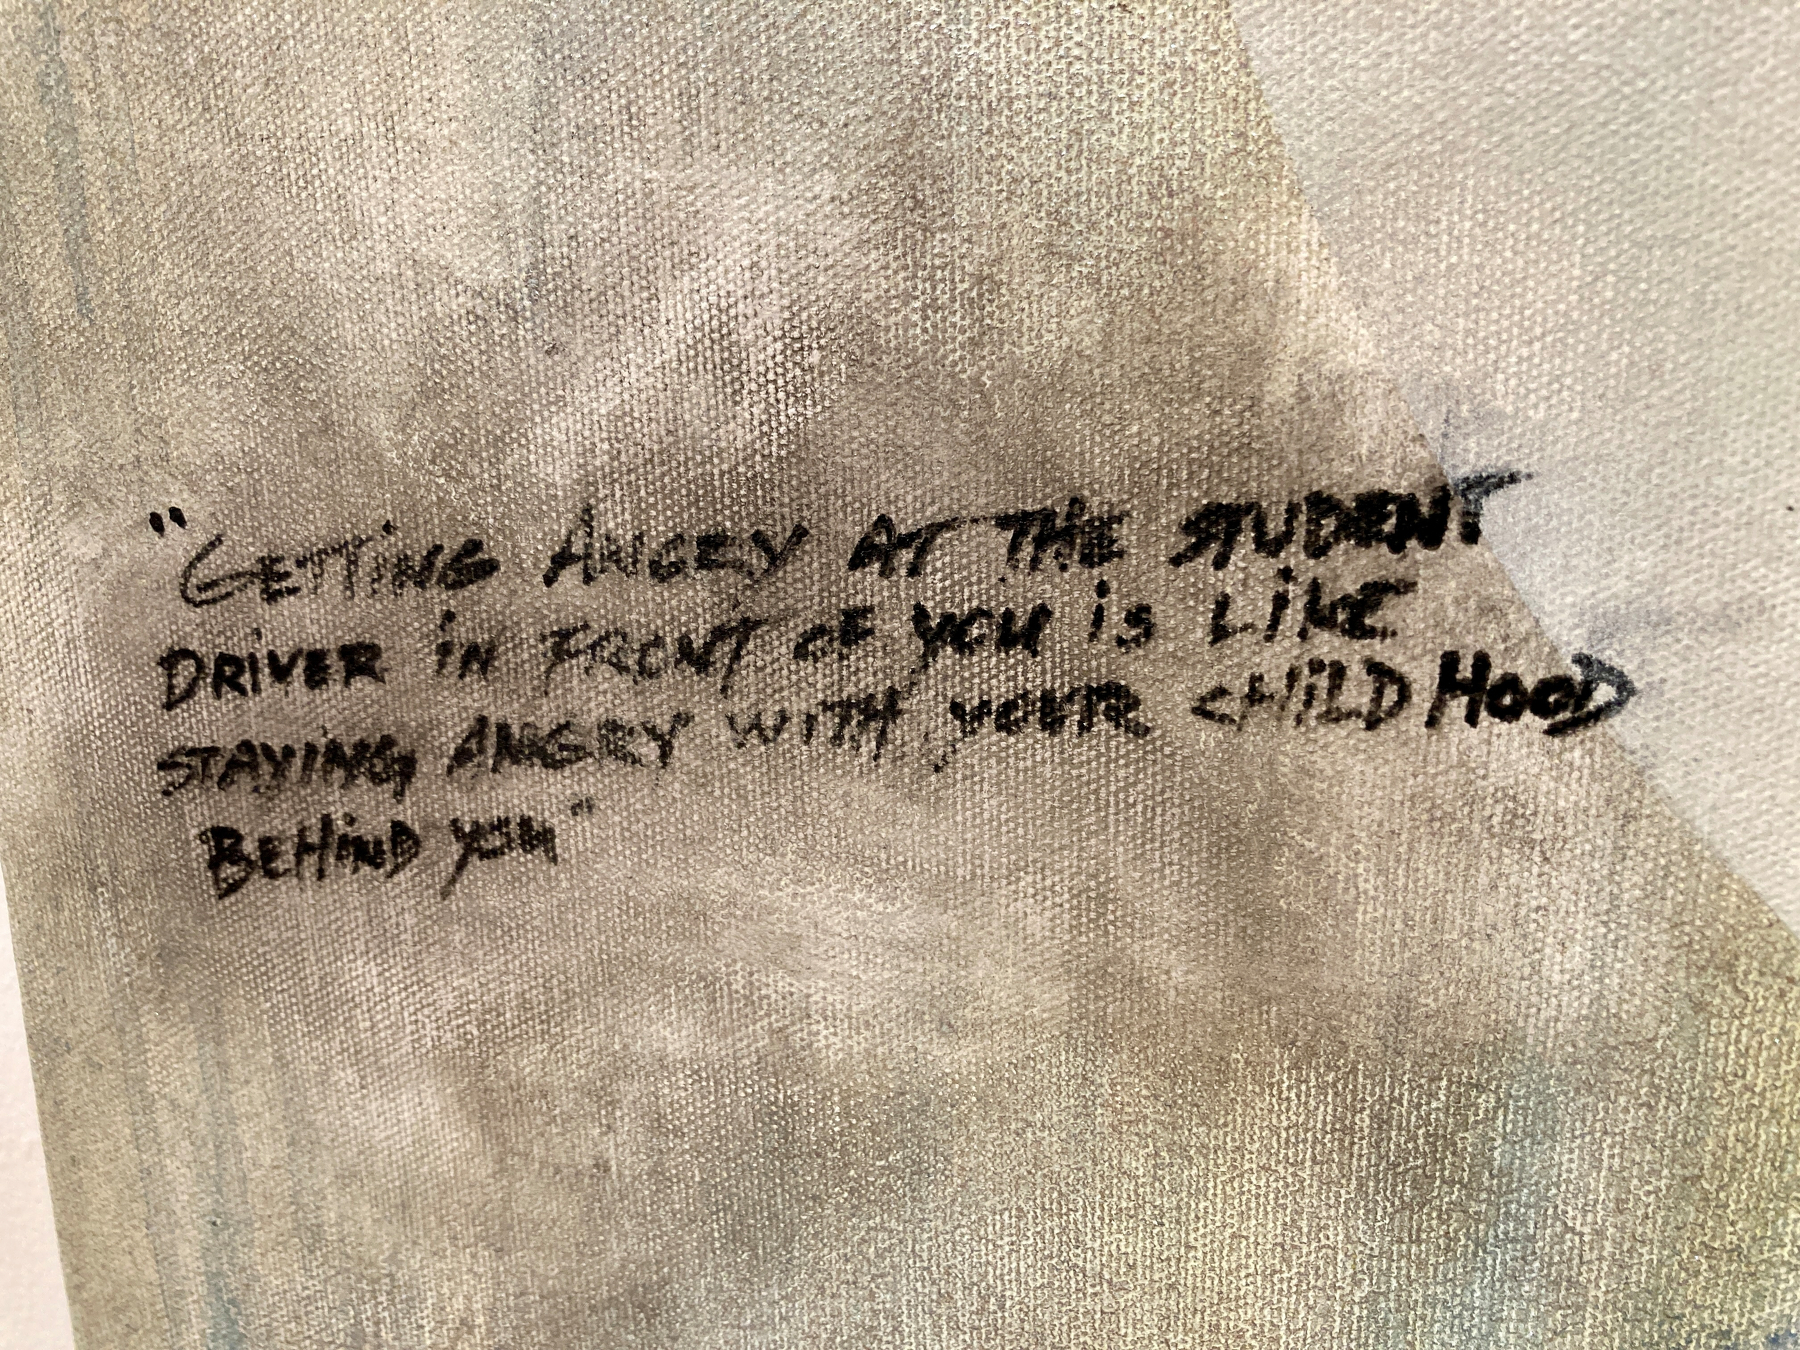 "GETTiNG ANGRY AT THE STUDENT
DRiVER iN FRONT OF YOU iS LiKE
STAYiNG ANGRY WITH YOUR CHiLDHOOD
BEHiND YOU"